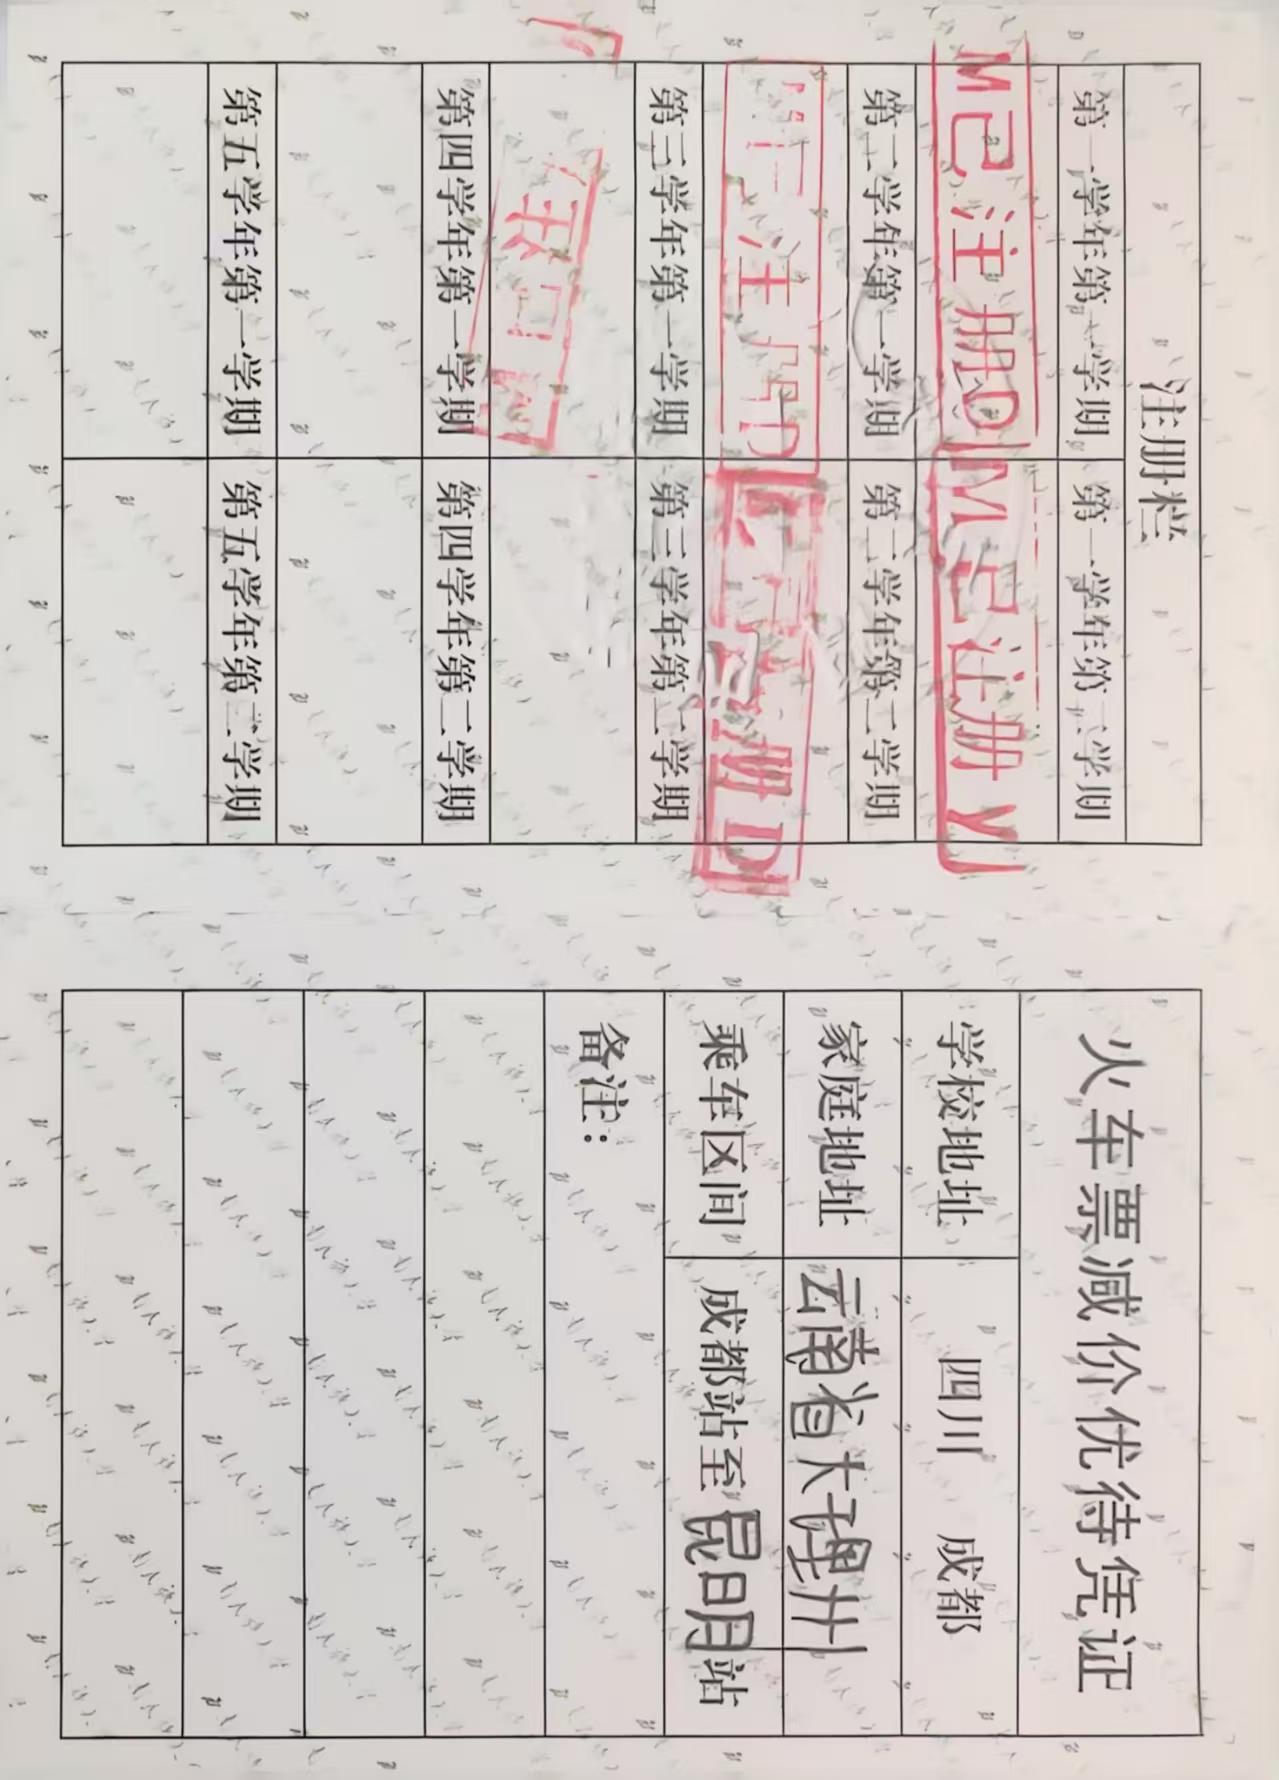 注册栏
第一学年第一学期 第一学年第二学期
M已注册D M已注册
第二学年第一学期 第二学年第二学期
已注册D 册D
第三学年第一学期 第三学年第二学期
第四学年第一学期 第四学年第二学期
第五学年第一学期 第五学年第二学期
火车票减价优待凭证
学校地址 四川 成都
家庭地址 云南省大理州
乘车区间 成都站至昆明站
备注：